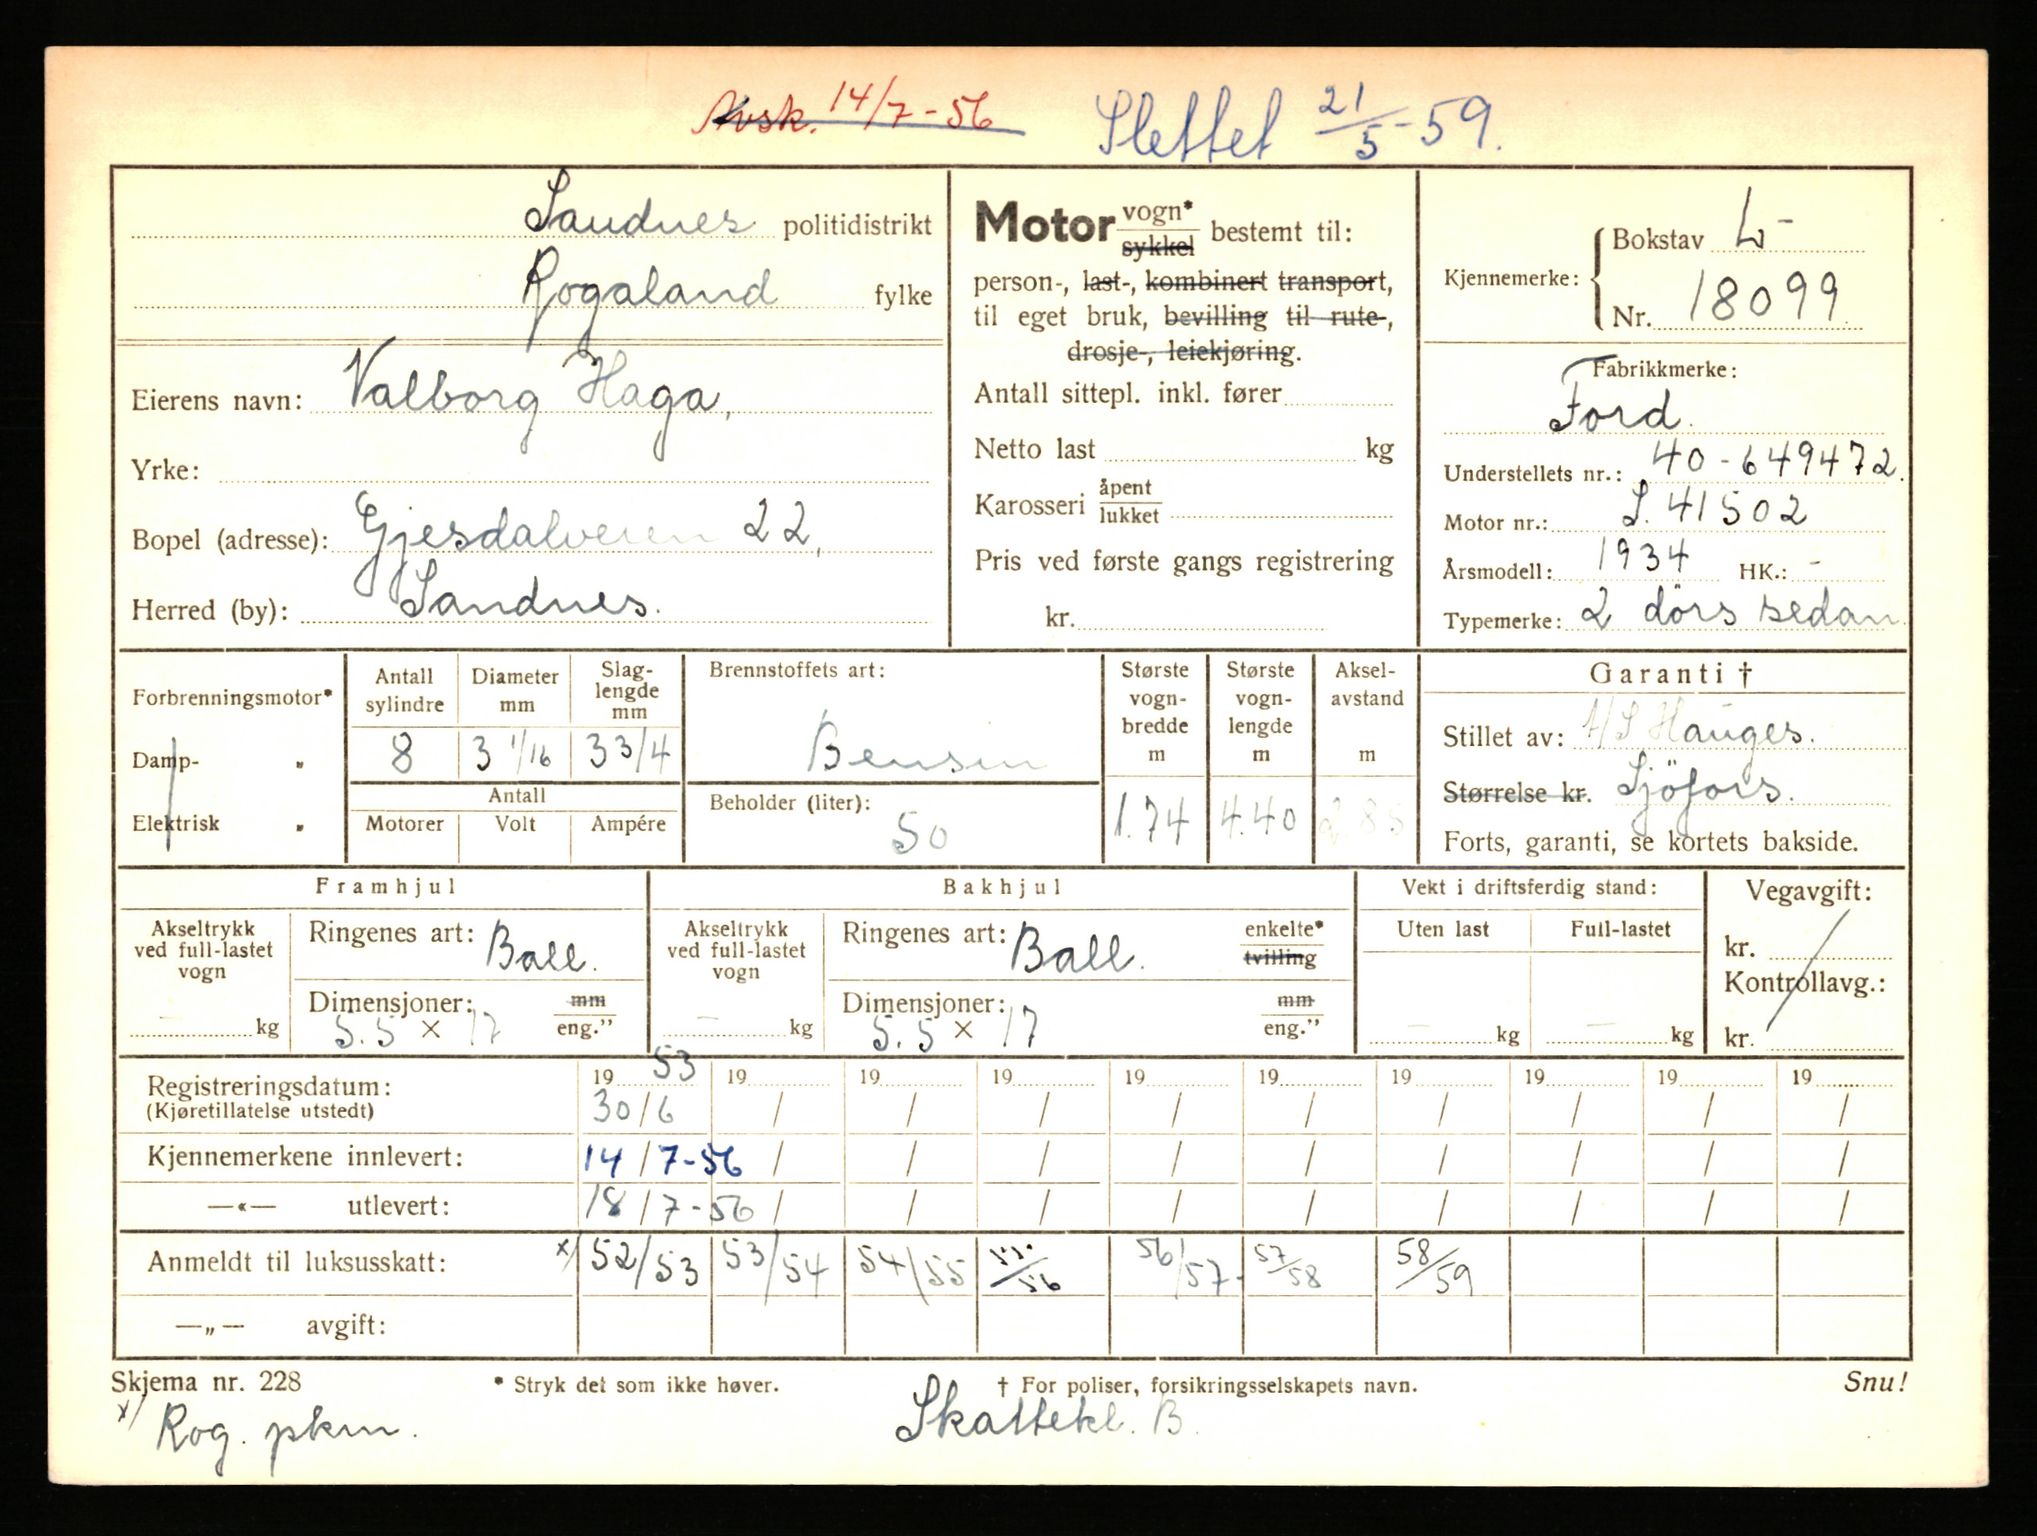 Avsk. 14/7-56 Slettet 21/5-59.
Sandnes politidistrikt
Rogaland fylke
Eierens navn: Valborg Haga,
Yrke:
Bopel (adresse): Gjesdalveien 22,
Herred (by): Sandnes.
Motor vogn* sykkel bestemt til:
person-, last-, kombinert transport,
til eget bruk, bevilling til rute-,
drosje-, leiekjøring.
Antall sittepl. inkl. fører
Netto last kg
Karosseri åpent lukket
Pris ved første gangs registrering
kr.
Kjennemerke: Bokstav L-
Nr. 18099
Fabrikkmerke:
Ford.
Understellets nr.: 40-649472.
Motor nr.: S. 41502
Årsmodell: 1934 HK.: -
Typemerke: 2 dörs sedan
Forbrenningsmotor*
Damp- „
Elektrisk „
Antall sylindre Diameter mm Slaglengde mm
8 3 1/16 3 3/4
Antall
Motorer Volt Ampére
Brennstoffets art:
Bensin
Beholder (liter):
50
Største vogn-bredde m Største vogn-lengde m Aksel-avstand m
1.74 4.40 2.85
Garanti †
Stillet av: A/S Hauges.
Størrelse kr. Sjöfors.
Forts, garanti, se kortets bakside.
Framhjul
Akseltrykk ved full-lastet vogn
- kg
Ringenes art: Ball.
Dimensjoner: mm eng.”
5.5 × 17
Bakhjul
Akseltrykk ved full-lastet vogn
- kg
Ringenes art: Ball. enkelte* tvilling
Dimensjoner: mm eng.”
5.5 × 17
Vekt i driftsferdig stand:
Uten last Full-lastet
- kg - kg
Vegavgift:
kr.
Kontrollavg.:
kr.
Registreringsdatum: 19 53 19 19 19 19 19 19 19 19 19
(Kjøretillatelse utstedt) 30/6 / / / / / / / / /
Kjennemerkene innlevert: 14/7-56 / / / / / / / / /
—«— utlevert: 18/7-56 / / / / / / / / /
Anmeldt til luksusskatt: x/ 52/53 53/54 54/55 55/56 56/57- 57/58 58/59
—„— avgift:
Skjema nr. 228 * Stryk det som ikke høver. † For poliser, forsikringsselskapets navn. Snu!
x/ Rog. pkm. Skattekl. B.